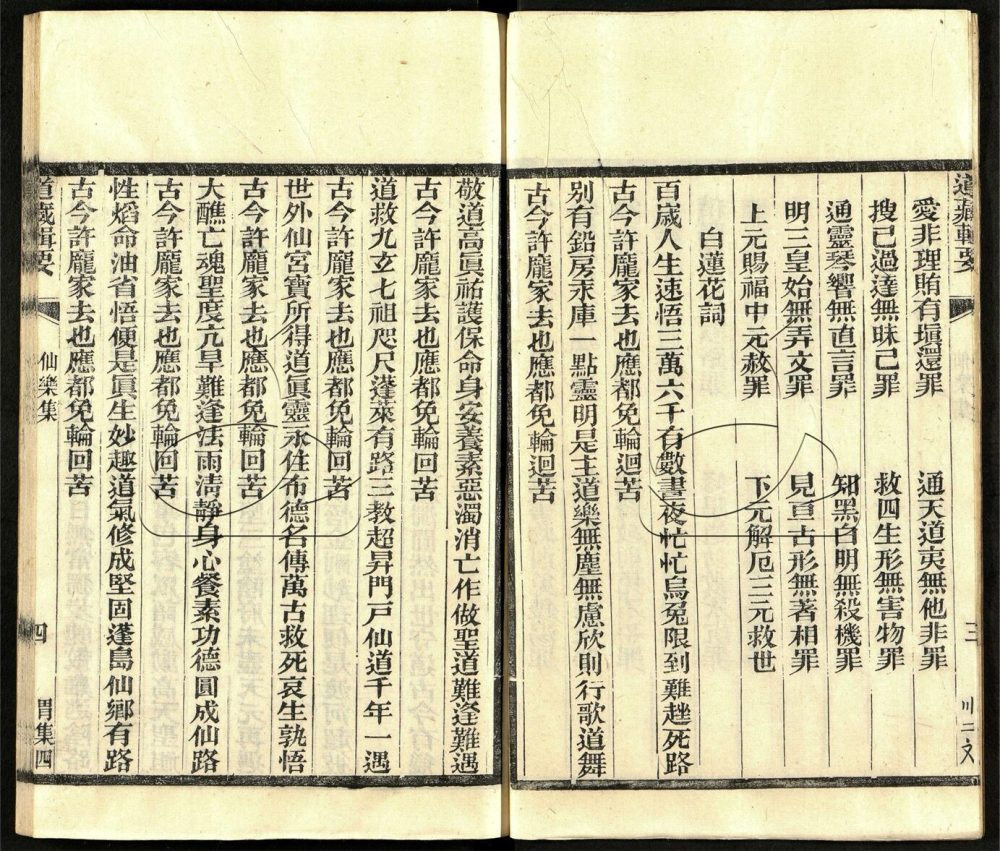 道藏輯要
三
愛非理賄有塡還罪 通天道夷無他非罪
搜己過達無昧己罪 救四生形無害物罪
通靈琴響無直言罪 知黑白明無殺機罪
明三皇始無弄文罪 見亘古形無著相罪
上元賜福中元赦罪 下元解厄三元救世
白蓮花詞
百歲人生速悟三萬六千有數晝夜忙忙烏兔限到難趓死路
古今許龐家去也應都免輪迴苦
别有鉛房汞庫一點靈明是主道樂無塵無慮欣則行歌道舞
古今許龐家去也應都免輪迴苦
敬道高眞祐護保命身安養素惡濁消亡作做聖道難逢難遇
古今許龐家去也應都免輪回苦
道救九玄七祖咫尺蓬萊有路三教超昇門戸仙道千年一遇
古今許龐家去也應都免輪回苦
世外仙宮寶所得道眞靈永住布德名傳萬古救死哀生孰悟
古今許龐家去也應都免輪回苦
大醮亡魂聖度亢旱難逢法雨清靜身心餐素功德圓成仙路
古今許龐家去也應都免輪回苦
性熖命油省悟便是眞生妙趣道氣修成堅固蓬島仙鄉有路
古今許龐家去也應都免輪回苦
道藏輯要 仙樂集 四 胃集四